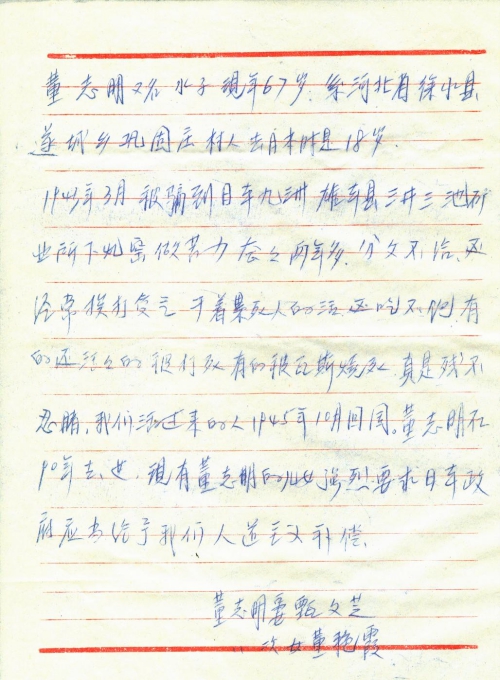 董志明又名水子现年67岁.系河北省徐水县
遂城乡巩固庄村人去日本时是18岁.
1943年3月被骗到日本九洲雄本县三井三池矿
业所下处窑做苦力太々两年多.分文不给.还
经常挨打受气干着累死人的活还吃不饱有
的还活々的被打死有的被瓦斯烧死.真是残不
忍睹,我们活过来的人1945年10月回国.董志明在
90年去世,现有董志明的妇女强烈要求日本政
府应当给予我们人道主义补偿.
董志明妻甄文芝
次女董艳霞